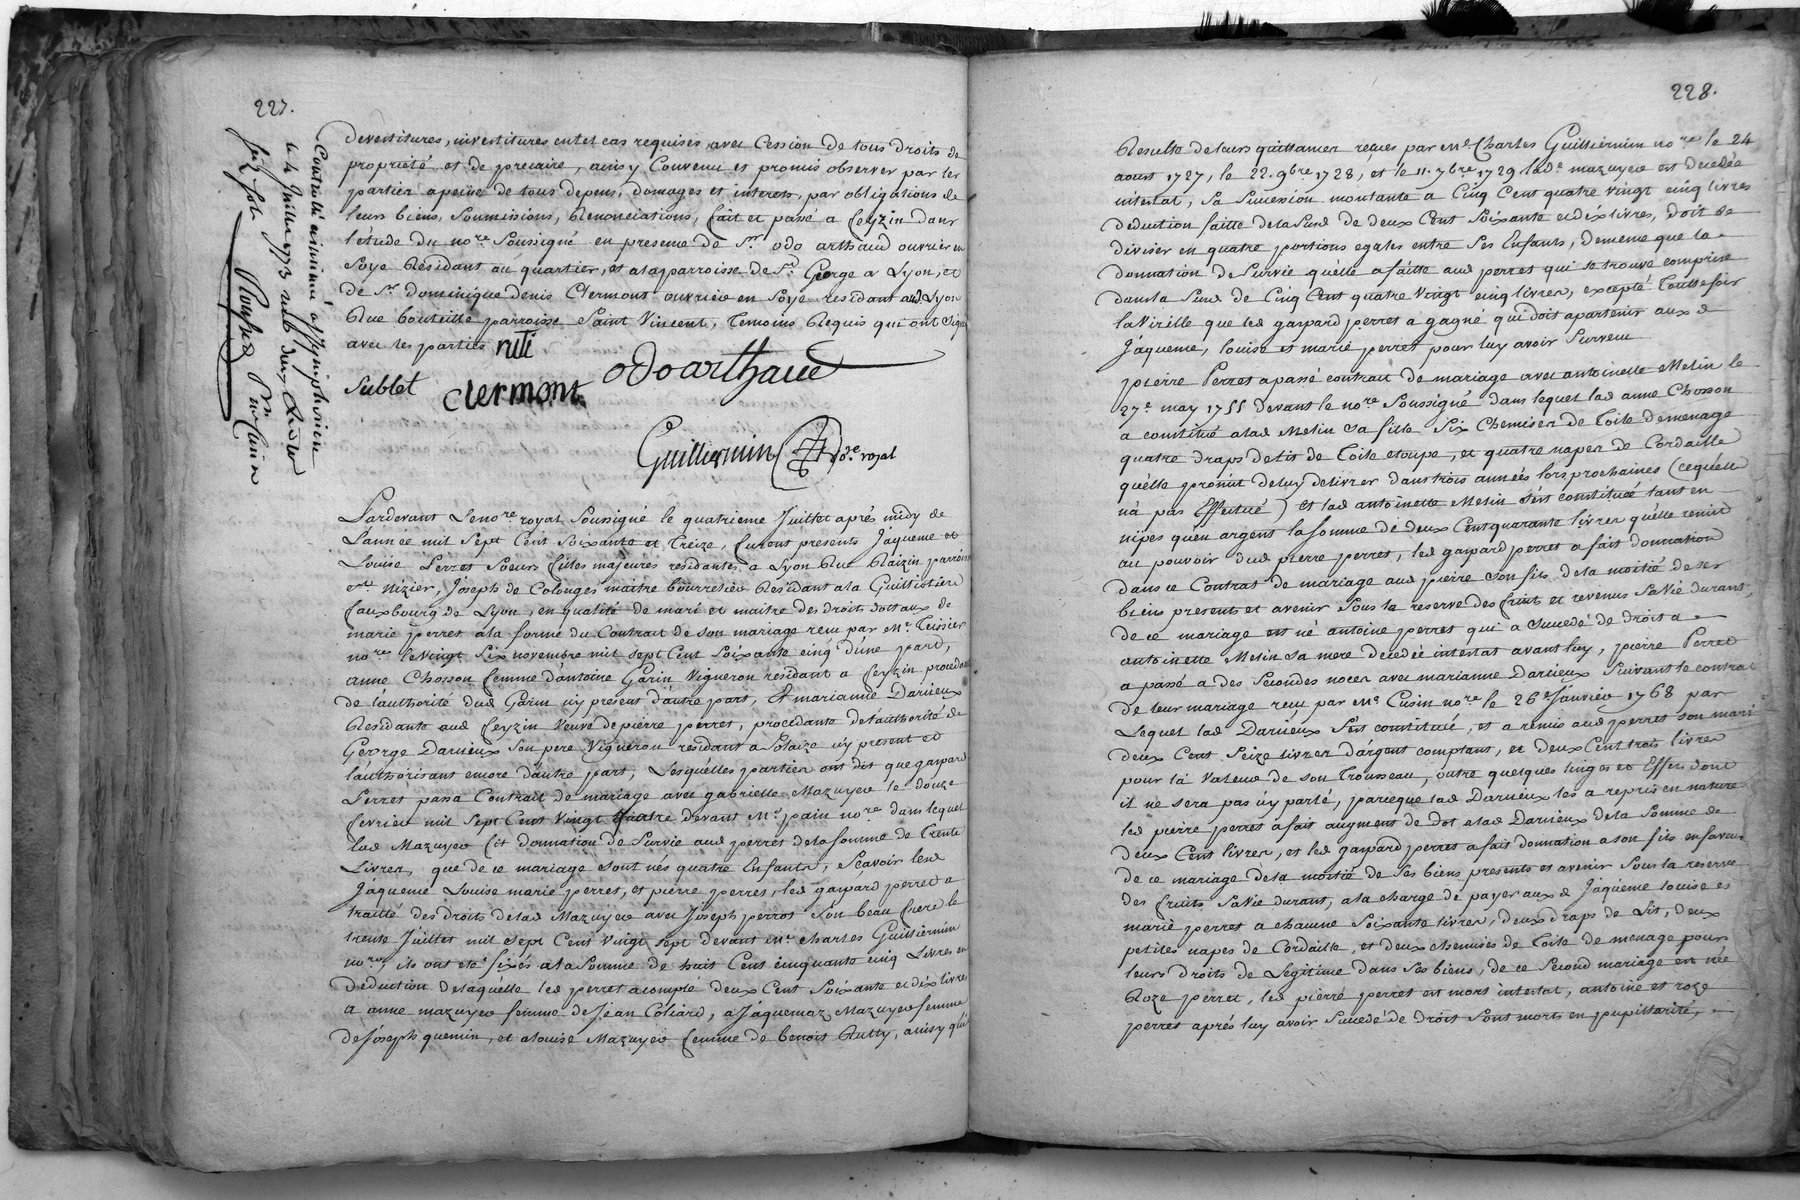 227.
Controllé et insinué a St Simphorien
le 4 Juillet 1773 reçu dix livres
six sols
devestitures, investitures en tel cas requises, avec Cession de tous droits de
propriété et de precaire, ainsy Convenu et promis observer par les
parties a peine de tous depens, domages et interets, par obligations de
leurs biens, Soumissions, Renonciations, fait et passé a feyzin dans
l'étude du no.re Soussigné en presence de Sr. odo arthaud ouvrier en
Soye Résidant au quartier, et a la parroisse de St. George a Lyon, et
de Sr. dominique denis Clermont ouvrier en Soye residant aud Lyon
Rue bouteille parroisse Saint Vincent, Temoins Requis qui ont signé
avec les parties ruti
Sublet Clermont odo arthaud
Guilliermin no.re royal
Pardevant Le no.re royal Soussigné le quatrieme Juillet aprés midy de
L'année mil Sept Cent Soixante et Treize, furent presents Jaqueme et
Louise Perret Soeurs filles majeures résidantes a Lyon Rue Raizin parroisse
St. nizier, Joseph de Colonges maitre bourrelier Résidant a la Guillotiere
fauxbourg de Lyon, en qualité de mari et maitre des droits dottaux de
marie perret a la forme du Contrait de son mariage reçu par Me. Teissier
no.re le vingt Six novembre mil sept Cent Soixante cinq d'une part,
anne Chosson femme d'antoine Garin Vigneron residant a feyzin procedant
de l'authorité dud Garin icy present d'autre part, Et marianne Darieux
Résidante aud feyzin Veuve de pierre perret, procedante de l'authorité de
George Darieux Son pere Vigneron résidant a Solaize icy present et
l'authorisant encore d'autre part, Lesquelles parties ont dit que gaspard
Perret passa Contrait de mariage avec gabrielle Mazuyer le douze
fevrier mil sept Cent Vingt quatre devant Me. pain no.re dans lequel
lad Mazuyer fit donnation de Survie aud perret de la somme de Trente
Livres, que de ce mariage sont nés quatre Enfants, Sçavoir lesd
Jaqueme Louise marie perret, et pierre perret, led gaspard perret a
traitté des droits de lad Mazuyer avec Joseph perrot Son beau frere le
trente Juillet mil sept Cent Vingt sept devant Me. Charles Guilliermin
no.re, ils ont eté fixés a la Somme de huit Cent cinquante cinq Livres en
déduction de laquelle led perret a compté deux Cent Soixante et dix livres
a anne mazuyer femme de Jean Coliard, a Jaquemaz Mazuyer femme
de Joseph quemin, et a louise Mazuyer femme de benoit Rutty, ainsy qu'il
228.
Resulte de leurs quittances reçues par Me. Charles Guilliermin no.re le 24
aoust 1727, le 22. 9bre 1728, et le 11. 7bre 1729 lade. mazuyer est décédée
intestat, sa Succession montante a Cinq Cent quatre vingt cinq livres
déduction faitte de la Sude de deux Cent Soixante et dix livres, doit se
diviser en quatre portions egales entre Ses Enfants, de meme que la
donnation de Survie qu'elle a faitte aud perret qui se trouve comprise
dans la Sude de Cinq Cent quatre Vingt cinq livres, excepté Touttefois
la Virille que led gaspard perret a gagné qui doit apartenir aux d
Jaqueme, louise et marie perret pour luy avoir Survecu
pierre Perret a passé contrait de mariage avec antoinette Melin le
27e may 1755 devant le no.re Soussigné dans lequel lad anne Chosson
a constitué a lad Melin sa fille Six Chemises de Toile de menage
quatre draps de lit de Toile etoupe, et quatre napes de Cordaille
qu'elle promit de luy delivrer dans trois années lors prochaines (ce qu'elle
n'a pas Effectué) et lad antoinette Melin s'est constituée tant en
nipes qu'en argent la somme de deux Cent quarante livres qu'elle remit
au pouvoir dud pierre perret, led gaspard perret a fait donnation
dans ce Contrat de mariage aud pierre son fils de la moitié de ses
biens presents et avenir Sous la reserve des fruits et revenus Sa Vie durant,
de ce mariage est né antoine perret qui a Succedé de droit a
antoinette Melin sa mere decedée intestat avant luy, pierre Perret
a passé a des Secondes noces avec marianne Darieux Suivant le contrat
de leur mariage reçu par Me. Cusin no.re le 26e Janvier 1768 par
Lequel lad Darieux s'est constitué, et a remis aud perret son mari
deux Cent Seize livres d'argent comptant, et deux Cent trois livres
pour la Valeur de son Trousseau, outre quelques linges et Effets dont
il ne sera pas icy parlé, parceque lad Darieux les a repris en nature
led pierre perret a fait augment de dot a lad Darieux de la Somme de
deux Cent livres, et led gaspard perret a fait donnation a son fils en faveur
de ce mariage de la moitié de Ses biens presents et avenir Sous la reserve
des fruits Sa Vie durant, a la charge de payer aux d Jaqueme louise et
marie perret a chacune Soixante livres, deux draps de Lit, deux
petites napes de Cordaille, et deux chemises de Toile de menage pour
leurs droits de Légitime dans Ses biens, de ce Second mariage est née
Roze perret, led pierre perret est mort intestat, antoine et roze
perret aprés luy avoir Succedé de droit sont morts en pupillarité,